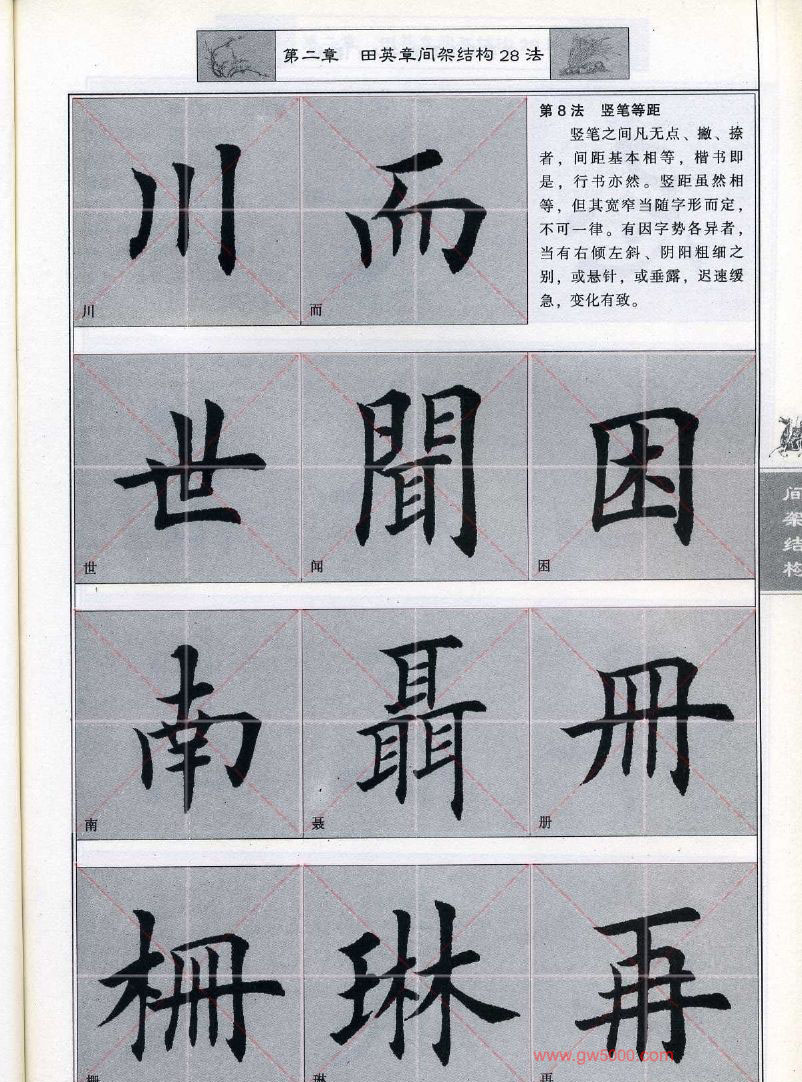 第二章 田英章间架结构28法
川
而
第8法 竖笔等距
竖笔之间凡无点、撇、捺
者，间距基本相等，楷书即
是，行书亦然。竖距虽然相
等，但其宽窄当随字形而定，
不可一律。有因字势各异者，
当有右倾左斜、阴阳粗细之
别，或悬针，或垂露，迟速缓
急，变化有致。
川
而
世
聞
困
世
闻
困
间架结构
南
聶
冊
南
聂
册
柵
琳
再
栅
琳
再
www.gw5000.com